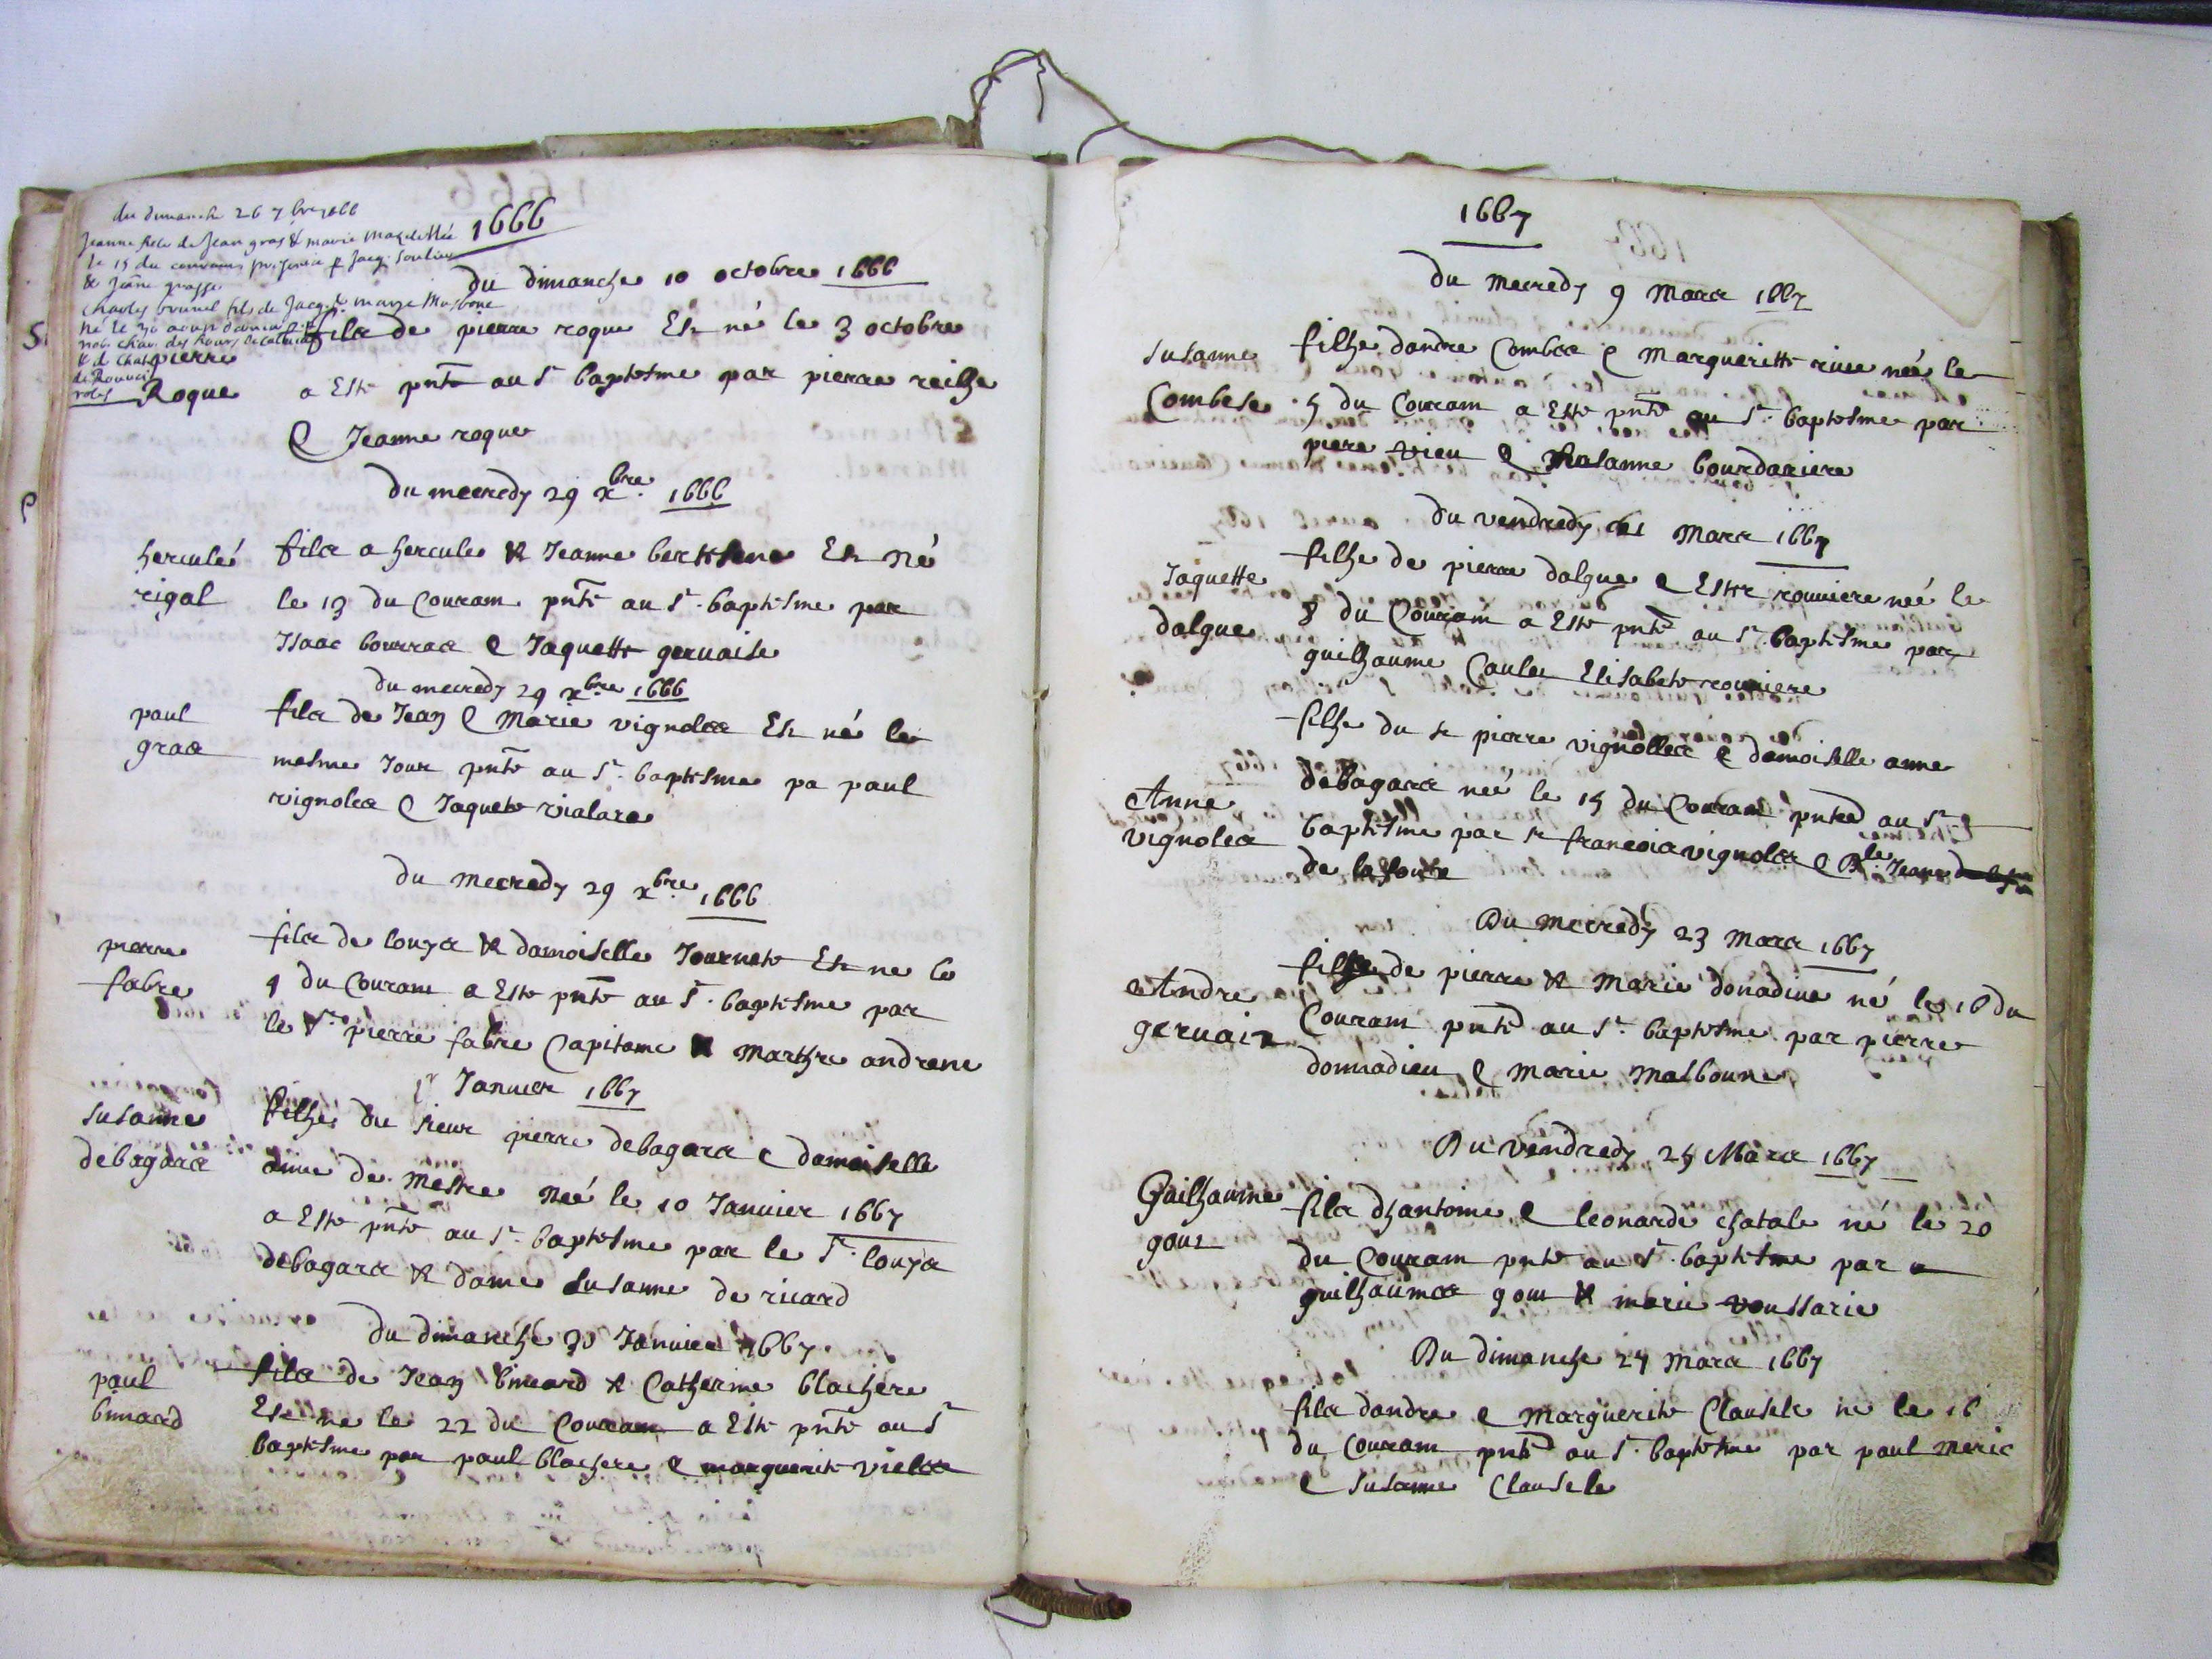 du dimanche 26 7bre 1666
Jeanne fille de Jean gras & marie née
le 15 du courant par Jacq. Soulier
& Jeane grasse
charles brunel fils de Jacq. & marye
né le 30
nob. char. des hours
1666
du dimanche 10 octobre 1666
pierre
Roque
fils de pierre roque Est né le 3 octobre
a Este pnte au St baptesme par pierre reilhe
e Jeanne roque
du mecredy 29 xbre 1666
hercule
rigal
fils a hercule & Jeanne Est né
le 13 du Couram pnte au St baptesme par
Isaac bourras e Jaquette geruaise
du mecredy 29 xbre 1666
paul
gras
fils de Jean e Marie vignoles Est né le
mesme Jour pnte au St baptesme pa paul
vignoles e Jaquete vialare
du mecredy 29 xbre 1666
pierre
fabre
fils de louys & damoiselle Tournete Est ne le
du Couram a Este pnte au St baptesme par
le Sr pierre fabre Capitame & marthe andrene
Januier 1667
susanne
debagars
filhe du sieur pierre debagars e damoiselle
anne de mestre neé le 10 Januier 1667
a Este pnte au St baptesme par le Sr louys
debagars & dame susanne de ricard
du dimanche 30 Januier 1667
paul
binard
fils de Jean binard & Catherine blachere
Est ne le 22 du Couram a Este pnte au St
baptesme par paul blachere e marguerite
1667
du mecredy 9 Mars 1667
susanne
Combese
filhe dandre Combes e Margueritte riue neé le
5 du Couram a Este pnte au St baptesme par
piere vieu e susanne bourdariere
du vendredy Mars 1667
Jaquette
dalgue
filhe de pierre dalgue e Ester rouuiere neé le
8 du Couram a Este pnte au St baptesme par
guilhaume Caule Elisabete rouuiere
Anne
vignoles
filhe du sr pierre vignolles e damoiselle anne
debagars neé le 15 du Couram pntee au St
baptesme par sr francois vignoles e Dlle Jeane
de lafont
Du mecredy 23 mars 1667
Andre
geruais
de pierre & Marie donadiue né le 16 du
Couram pnte au St baptesme par pierre
donnadieu e Marie malboune
Du vendredy 25 Mars 1667
Guilhaume
gout
fils dhantoine e leonarde chatale né le 20
du Couram pnte au St baptesme par
guilhaumes gout & marie voussarie
Du dimanche 27 mars 1667
fils dandre e marguerite Clausele né le 16
du Couram pnte au St baptesme par paul meric
e susanne Clausele